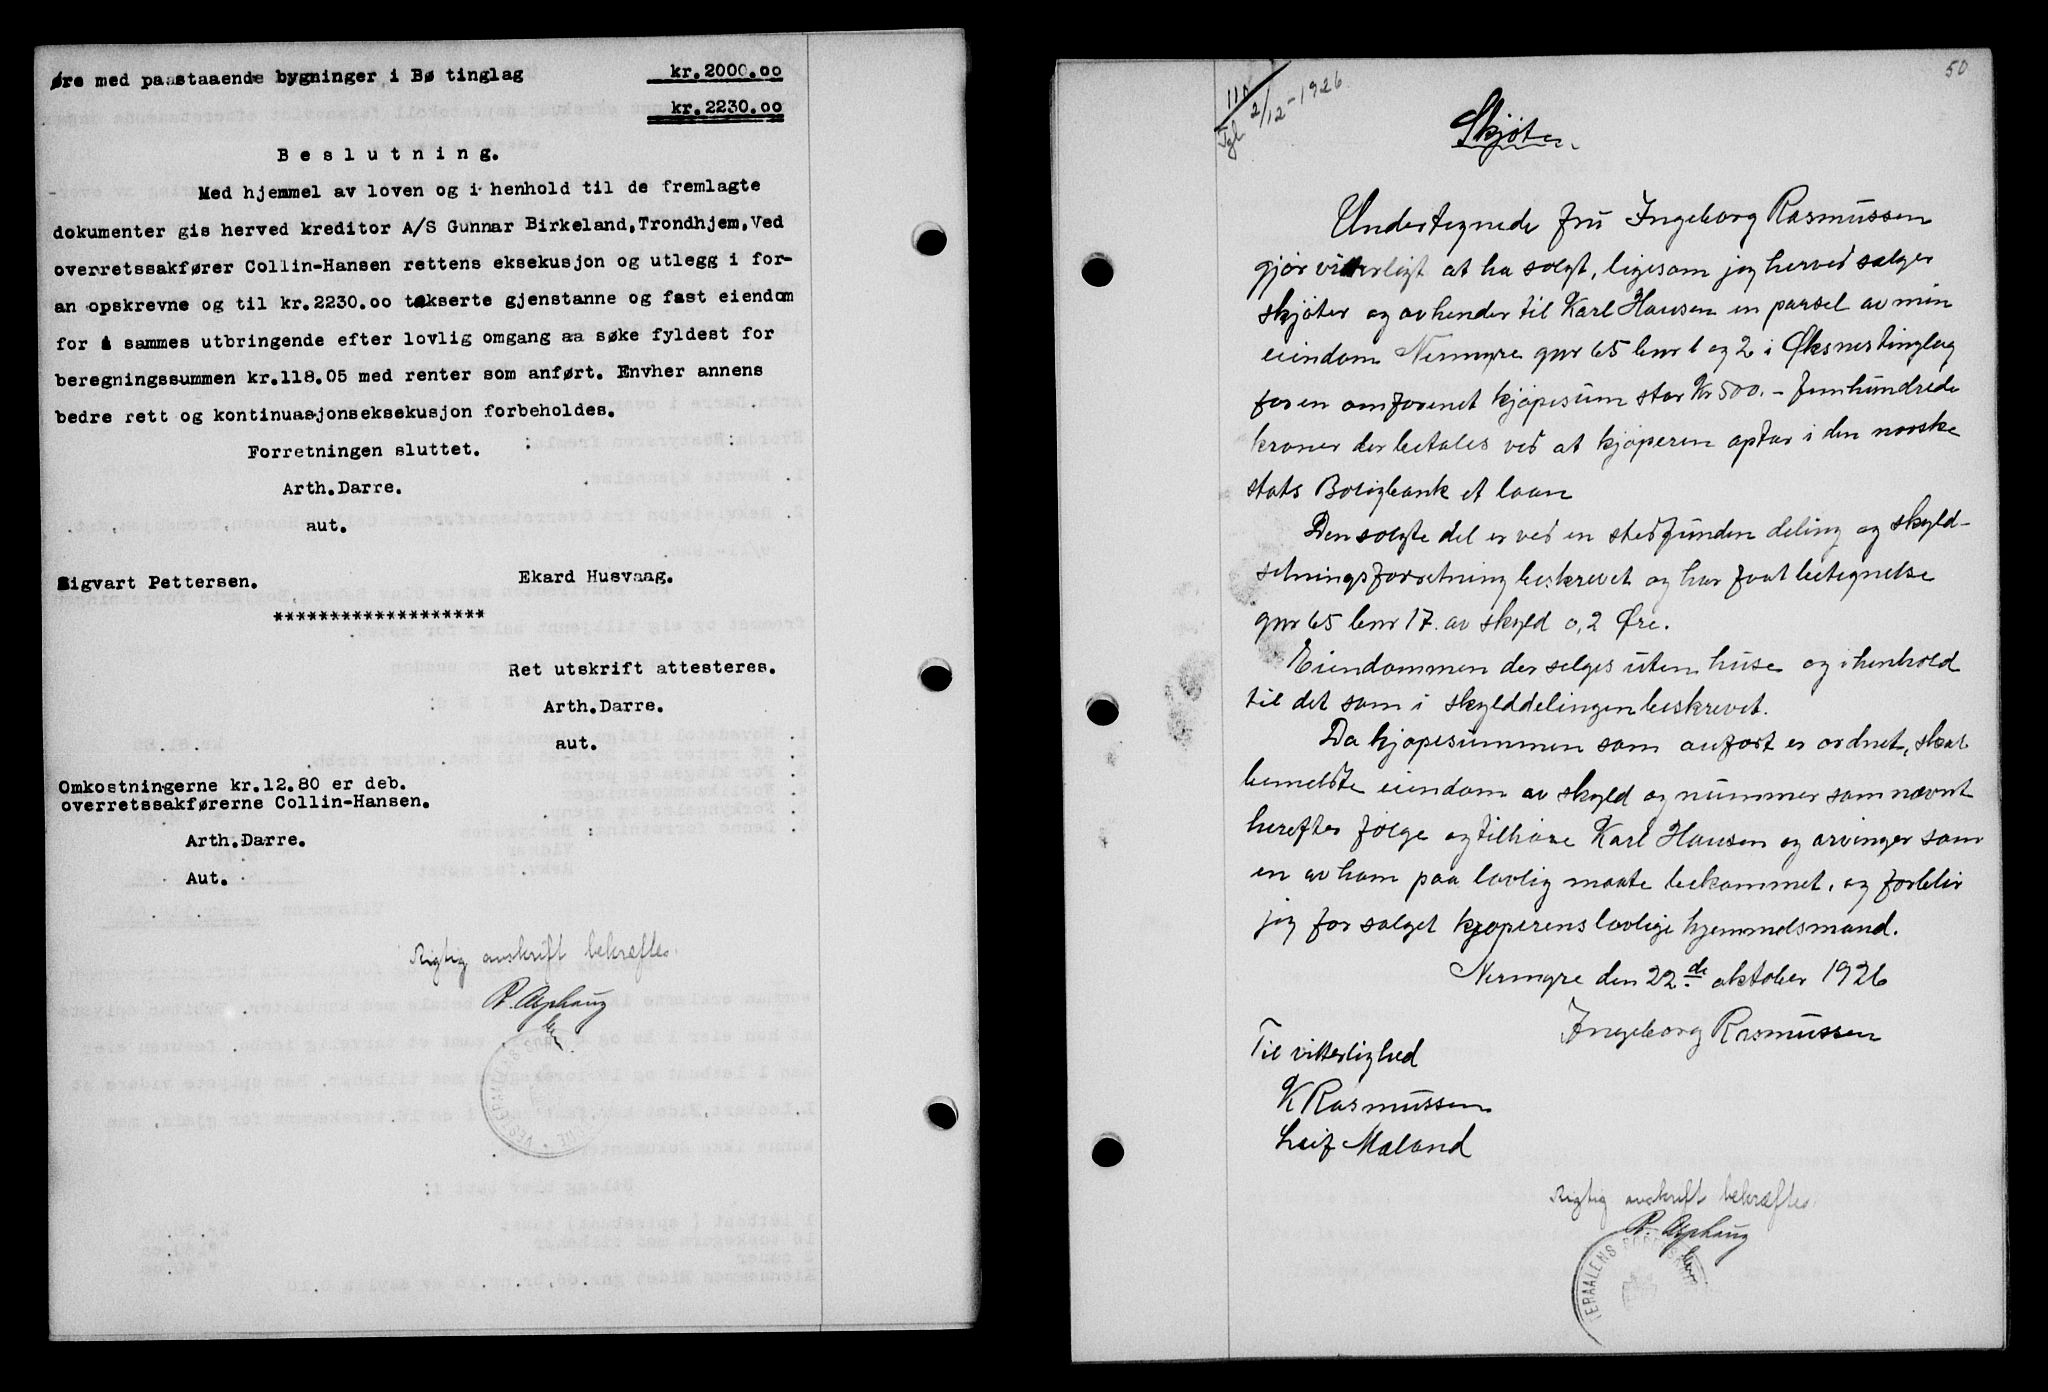 øre med paastaaende bygninger i Bø tinglag kr.2000.oo
kr.2230.oo
Beslutning.
Med hjemmel av loven og i henhold til de fremlagte
dokumenter gis herved kreditor A/S Gunnar Birkeland,Trondhjem,Ved
overretssakfører Collin-Hansen rettens eksekusjon og utlegg i for-
an opskrevne og til kr.2230.oo takserte gjenstanne og fast eiendom
for i sammes utbringende efter lovlig omgang aa søke fyldest for
beregningssummen kr.118.05 med renter som anført. Envher annens
bedre rett og kontinuasjonseksekusjon forbeholdes.
Forretningen sluttet.
Arth.Darre.
aut.
Sigvart Pettersen. Ekard Husvaag.
*******************
Ret utskrift attesteres.
Arth.Darre.
aut.
Omkostningerne kr.12.80 er deb.
overretssakførerne Collin-Hansen.
Arth.Darre.
Aut.
Rigtig avskrift bekræftes.
50
Tgl 2/12-1926
Skjøte.
Undertegnede fru Ingeborg Rasmussen
gjør vitterligt at ha solgt, ligesom jeg herved sælger
skjøter og avhender til Karl Hansen en parsel av min
eiendom Nermyre gnr 65 bnr 1 og 2 i Øksnes tinglag
for en omforenet kjøpesum stor Kr 500.- femhundrede
kroner der betales ved at kjøperen optar i den norske
stats Boligbank et laan
Den solgte del er ved en stedfunden deling og skyld-
setningsforretning beskrevet og har faat betegnelse
gnr 65 bnr 17. av skyld 0,2 Øre.
Eiendommen der selges uten huse og i henhold
til det som i skylddelingen beskrevet.
Da kjøpesummen som anført er ordnet, skal
bemeldte eiendom av skyld og nummer som nævnt
herefter følge og tilhøre Karl Hansen og arvinger som
en av ham paa lovlig maate bekommet, og forblir
jeg for salget kjøperens lovlige hjemmelsmand.
Nermyre den 22de oktober 1926
Ingeborg Rasmussen
Til vitterlighed
K Rasmussen
Leif Maland
Rigtig avskrift bekræftes.